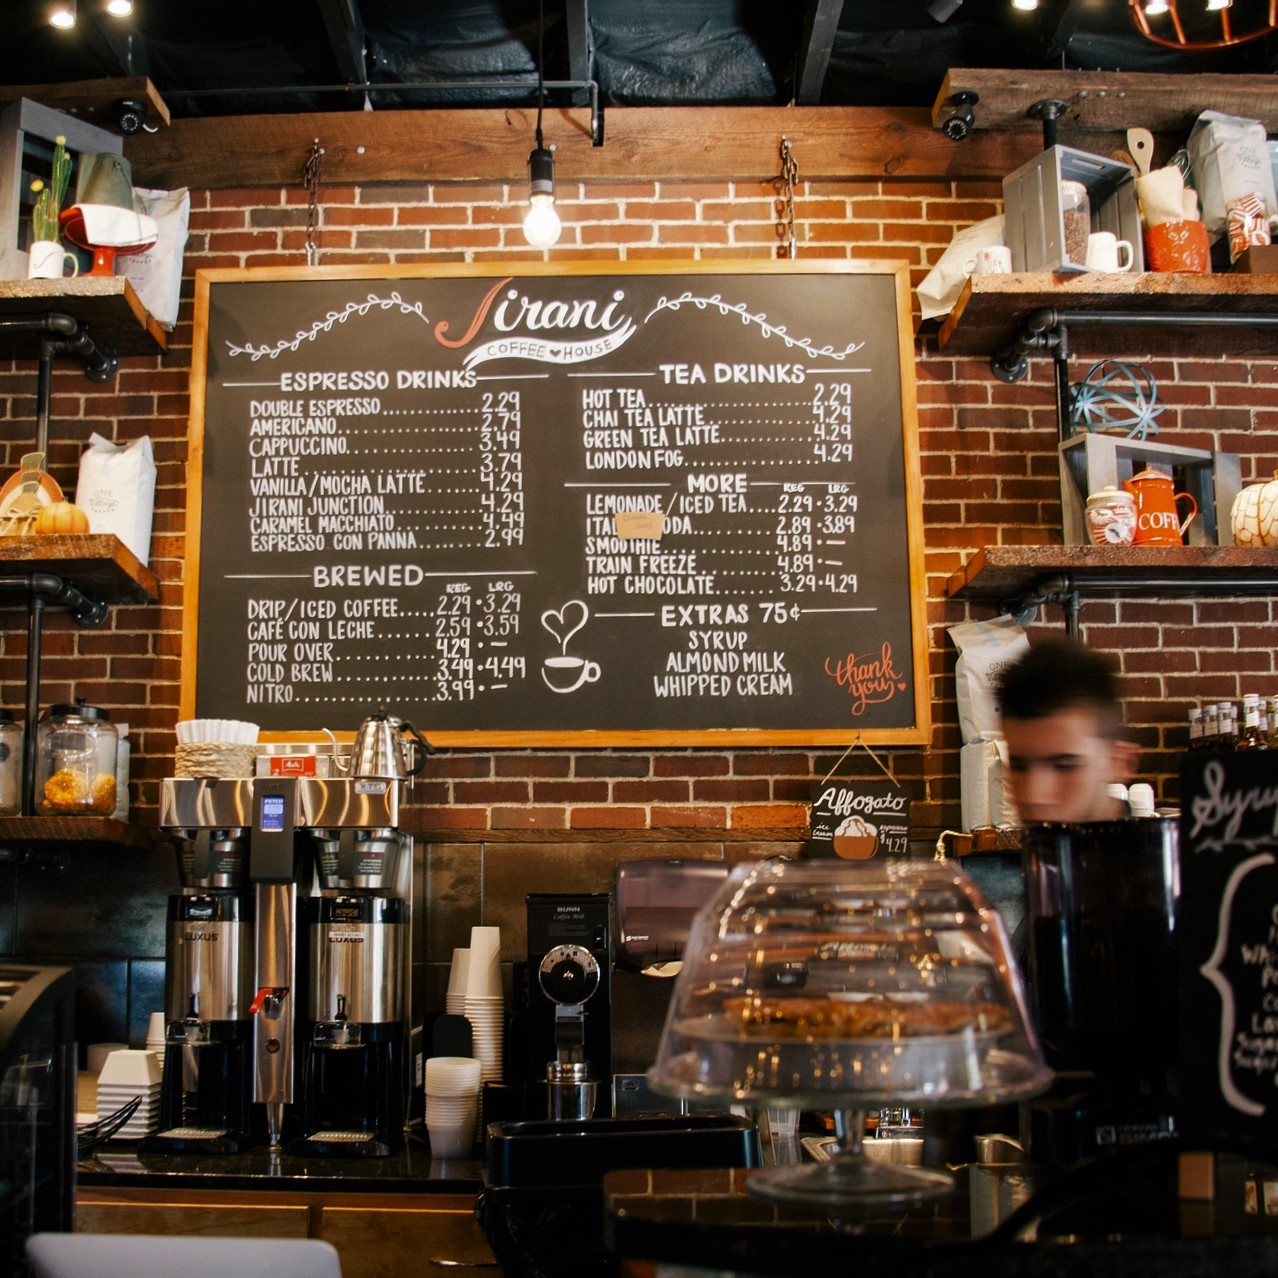 Jirani
COFFEE HOUSE
ESPRESSO DRINKS
DOUBLE ESPRESSO 2.29
AMERICANO 2.79
CAPPUCCINO 3.49
LATTE 3.79
VANILLA/MOCHA LATTE 4.29
JIRANI JUNCTION 4.29
CARAMEL MACCHIATO 4.49
ESPRESSO CON PANNA 2.99
BREWED
REG LRG
DRIP/ICED COFFEE 2.29 • 3.29
CAFÉ CON LECHE 2.59 • 3.59
POUR OVER 4.29 • —
COLD BREW 3.49 • 4.49
NITRO 3.99 • —
TEA DRINKS
HOT TEA 2.29
CHAI TEA LATTE 4.29
GREEN TEA LATTE 4.29
LONDON FOG 4.29
MORE REG LRG
LEMONADE/ICED TEA 2.29 • 3.29
ITA ODA 2.89 • 3.89
SMOOTHIE 4.89 • —
TRAIN FREEZE 4.89 • —
HOT CHOCOLATE 3.29 • 4.29
EXTRAS 75¢
SYRUP
ALMOND MILK
WHIPPED CREAM
thank
you
Affogato
ice cream
espresso
$4.29
COFF
LUXUS
LUXUS
BUNN
Melitta
ONE
ONE
ONE